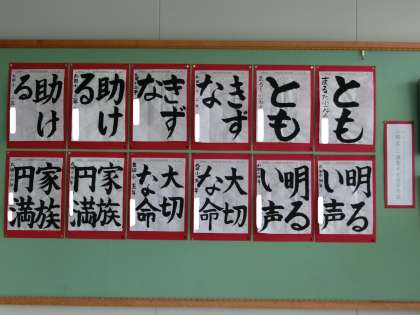 とも
とも
きずな
きずな
助ける
助ける
明るい声
明るい声
大切な命
大切な命
家族円満
家族円満